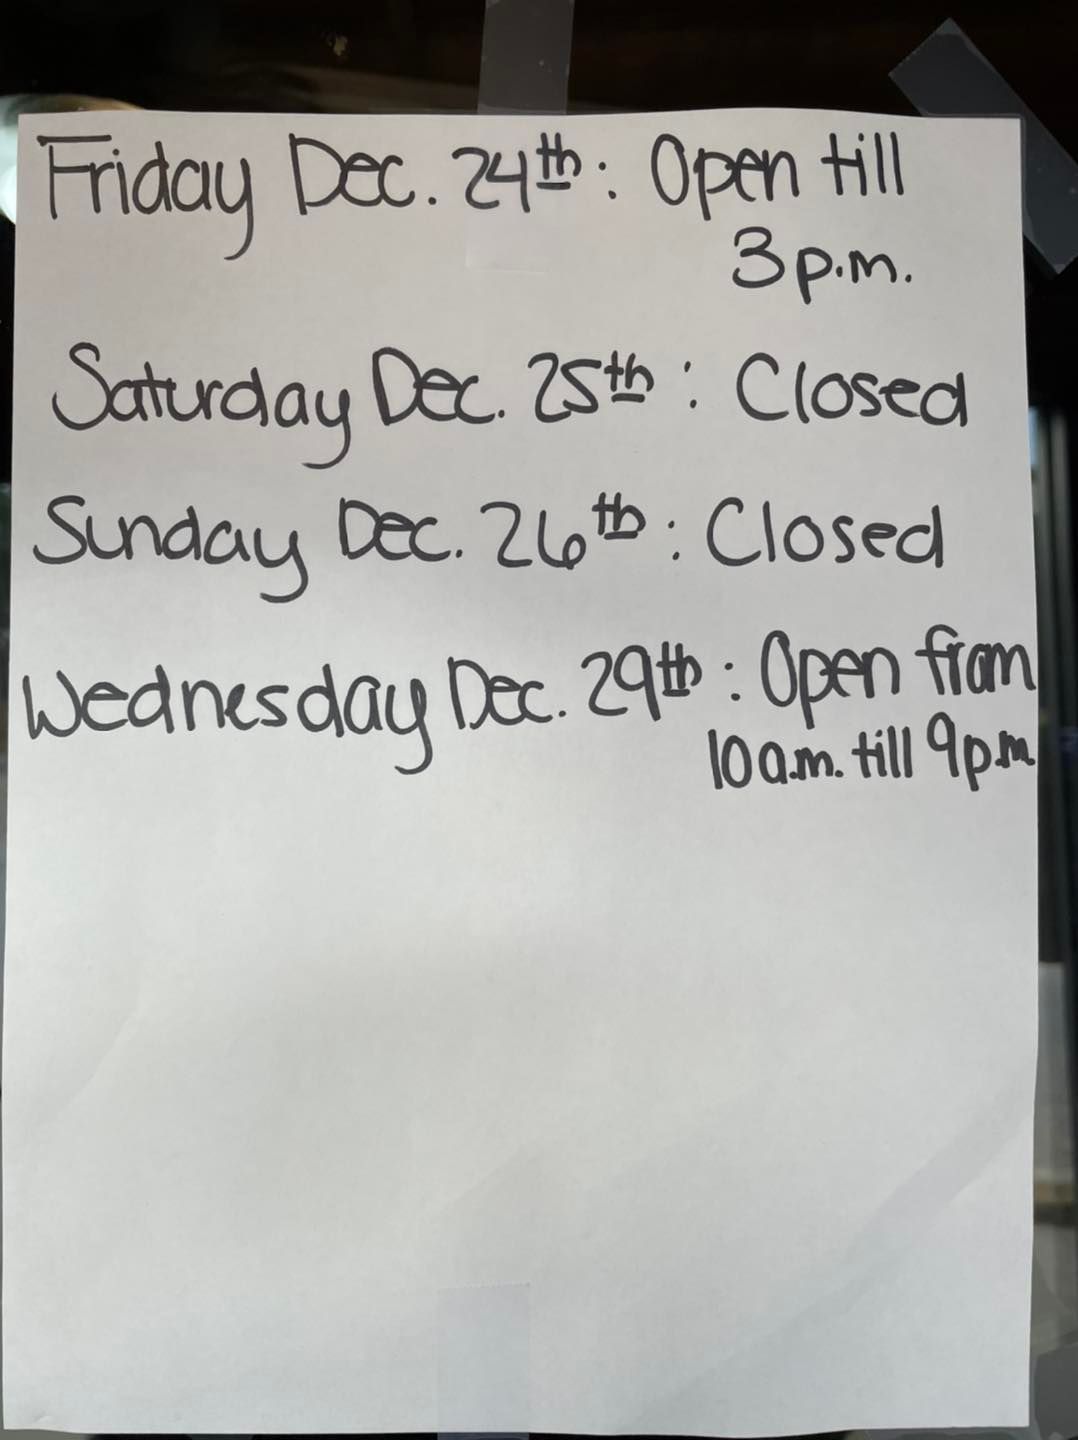 Friday Dec. 24th: Open till
3 p.m.
Saturday Dec. 25th: Closed
Sunday Dec. 26th: Closed
Wednesday Dec. 29th: Open from
10 a.m. till 9 p.m.